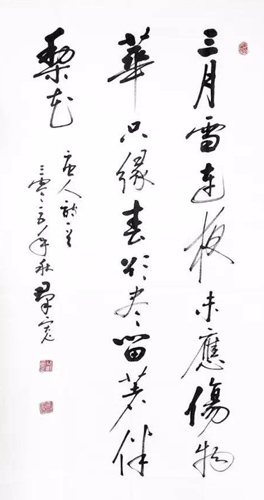 三月雪連夜未應傷物
華只緣春欲盡留著伴
梨花
唐人詩
二零一五年秋